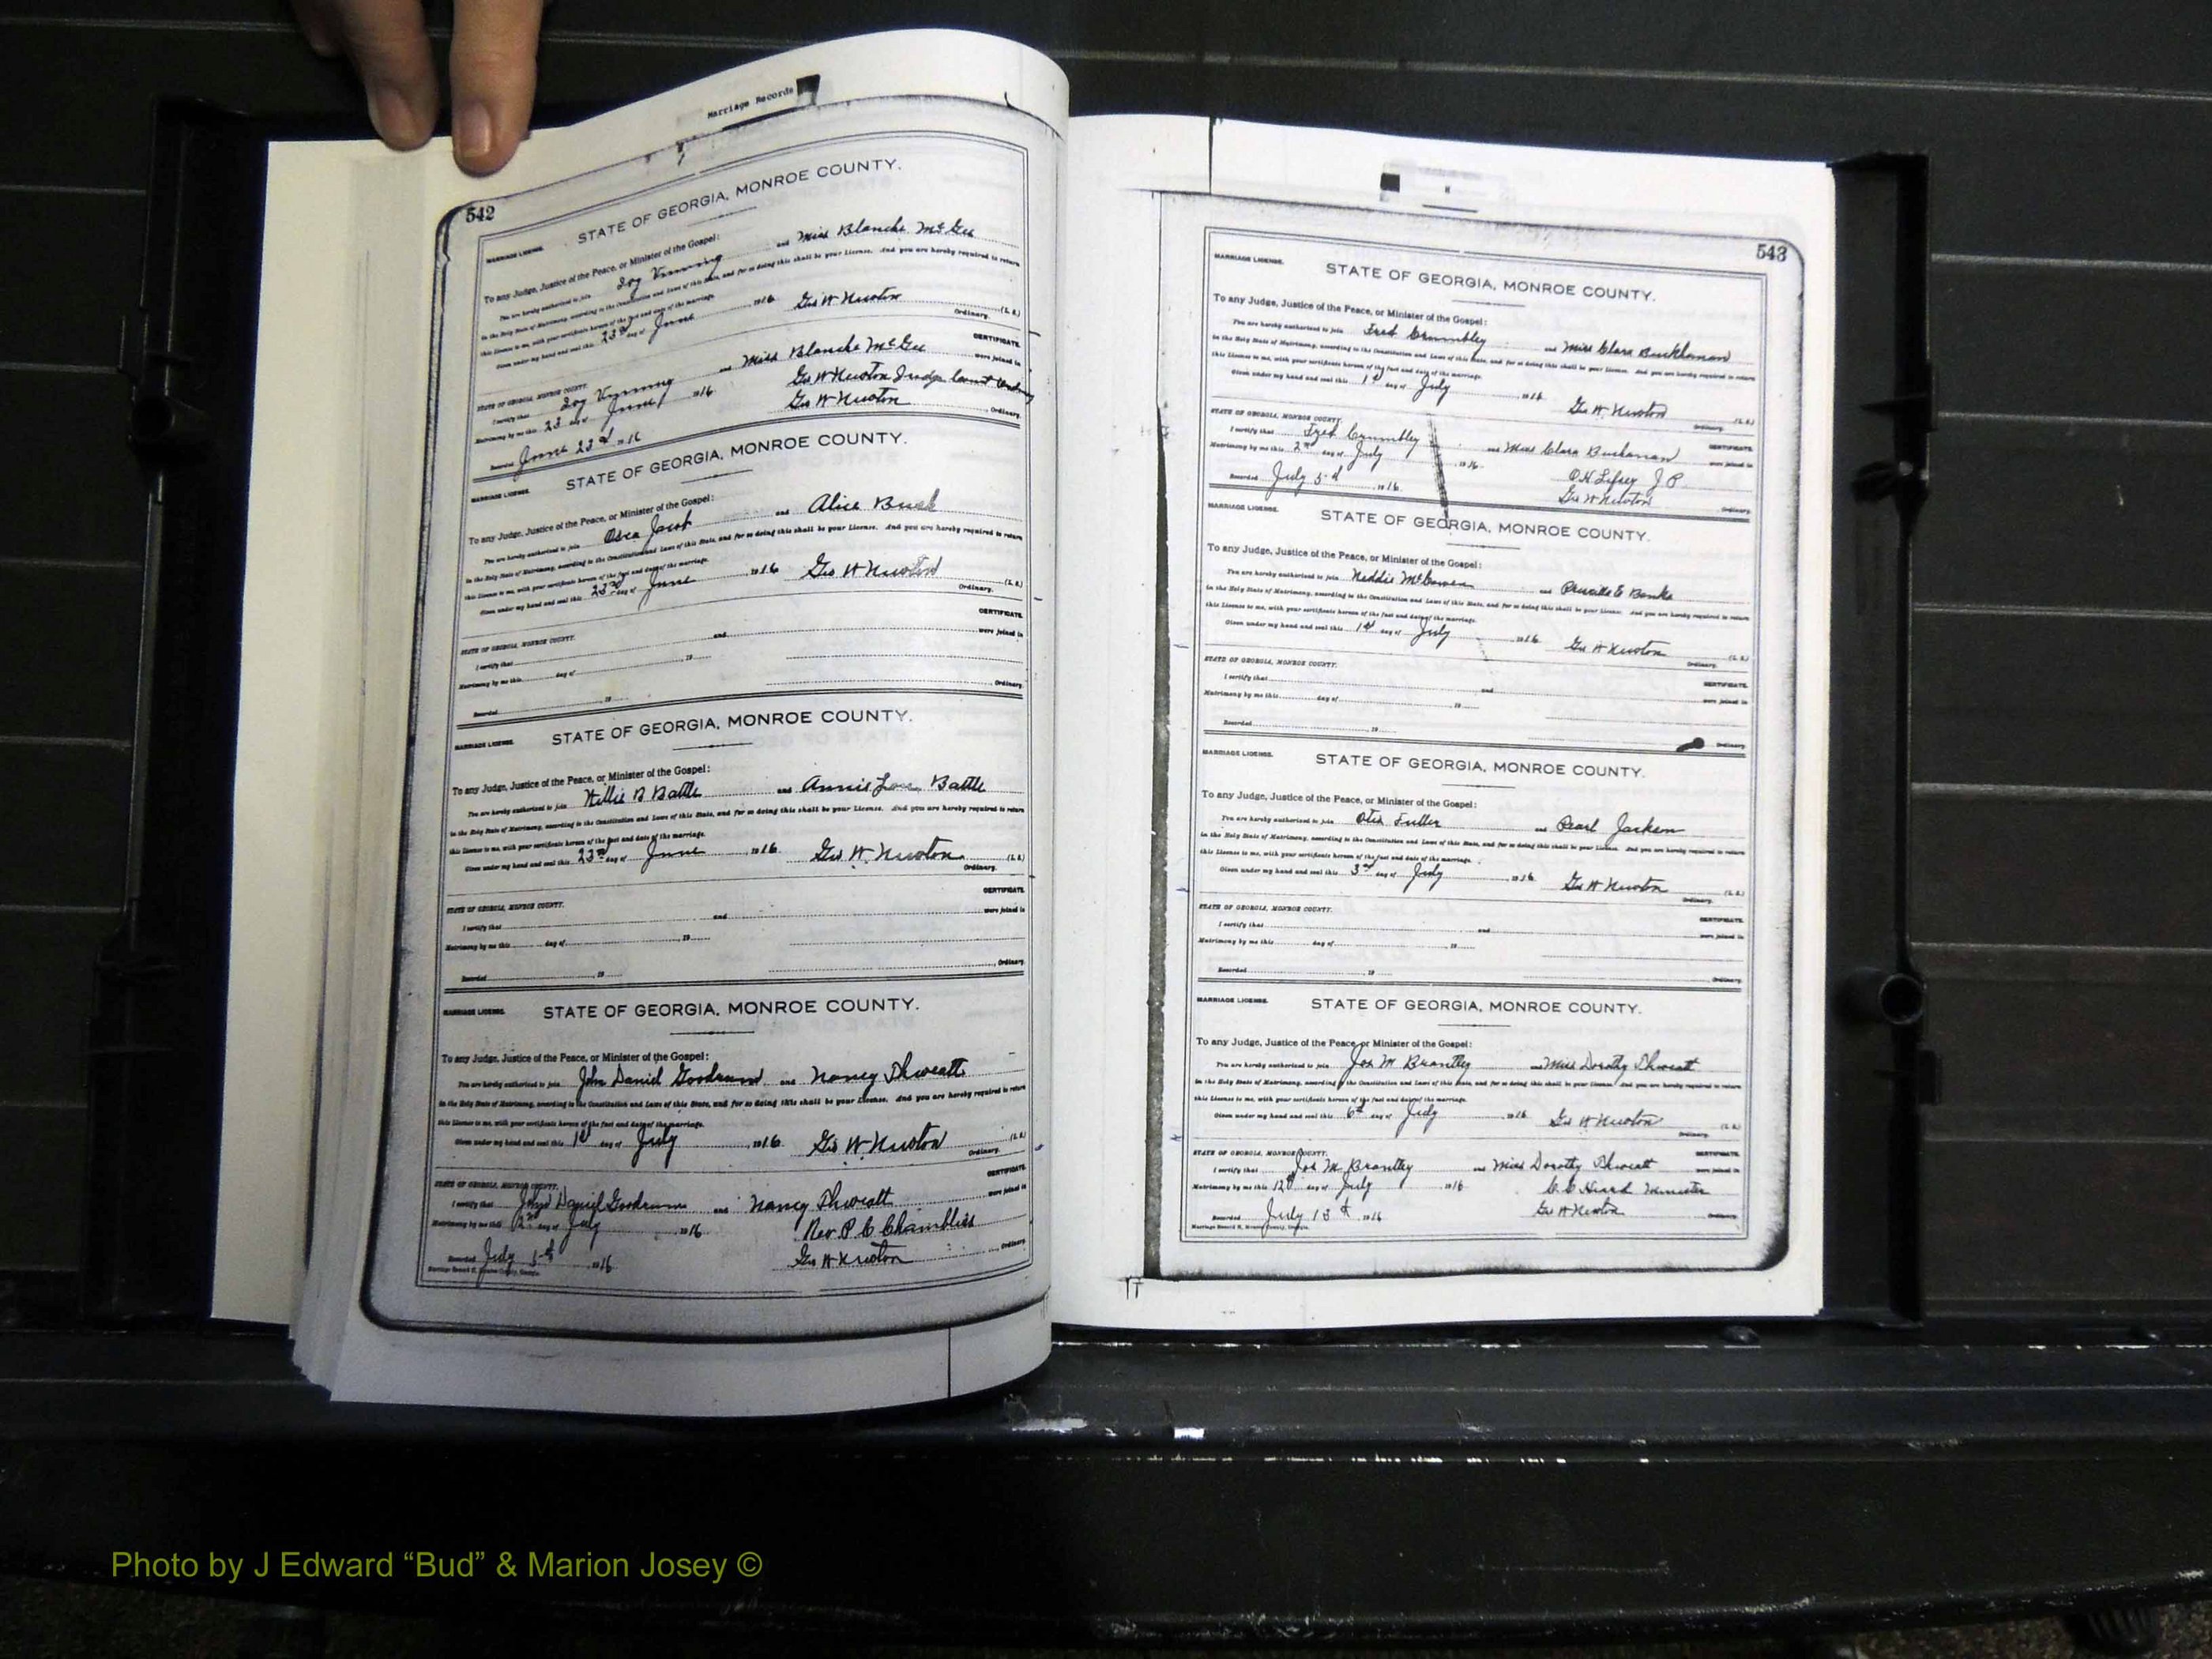 Marriage Records
542
STATE OF GEORGIA, MONROE COUNTY.
MARRIAGE LICENSE.
To any Judge, Justice of the Peace, or Minister of the Gospel:
You are hereby authorized to join Joy Vinning and Miss Blanche McGee
in the Holy State of Matrimony, according to the Constitution and Laws of this State, and for so doing this shall be your License. And you are hereby required to return
this License to me, with your certificate hereon of the fact and date of the marriage.
Given under my hand and seal this 23rd day of June 1916 Geo W Newton (L. S.)
Ordinary.
CERTIFICATE.
STATE OF GEORGIA, MONROE COUNTY.
I certify that Joy Vinning and Miss Blanche McGee were joined in
Matrimony by me this 23 day of June 1916 Geo W Newton Judge Court
Recorded June 23d 1916 Geo W Newton Ordinary.
MARRIAGE LICENSE. STATE OF GEORGIA, MONROE COUNTY.
To any Judge, Justice of the Peace, or Minister of the Gospel:
You are hereby authorized to join Jacob and Alice
in the Holy State of Matrimony, according to the Constitution and Laws of this State, and for so doing this shall be your License. And you are hereby required to return
this License to me, with your certificate hereon of the fact and date of the marriage.
Given under my hand and seal this 23rd day of June 1916 Geo W Newton (L. S.)
Ordinary.
CERTIFICATE.
STATE OF GEORGIA, MONROE COUNTY.
I certify that and were joined in
Matrimony by me this day of , 19
Recorded , 19 Ordinary.
MARRIAGE LICENSE. STATE OF GEORGIA, MONROE COUNTY.
To any Judge, Justice of the Peace, or Minister of the Gospel:
You are hereby authorized to join Willie B Battle and Annie Lou Battle
in the Holy State of Matrimony, according to the Constitution and Laws of this State, and for so doing this shall be your License. And you are hereby required to return
this License to me, with your certificate hereon of the fact and date of the marriage.
Given under my hand and seal this 23rd day of June 1916 Geo W. Newton (L. S.)
Ordinary.
CERTIFICATE.
STATE OF GEORGIA, MONROE COUNTY.
I certify that and were joined in
Matrimony by me this day of , 19
Recorded , 19 , Ordinary.
MARRIAGE LICENSE. STATE OF GEORGIA, MONROE COUNTY.
To any Judge, Justice of the Peace, or Minister of the Gospel:
You are hereby authorized to join John Daniel Goodrum and Nancy Thweatt
in the Holy State of Matrimony, according to the Constitution and Laws of this State, and for so doing this shall be your License. And you are hereby required to return
this License to me, with your certificate hereon of the fact and date of the marriage.
Given under my hand and seal this 1st day of July , 1916 Geo W. Newton (L. S.)
Ordinary.
CERTIFICATE.
STATE OF GEORGIA, MONROE COUNTY.
I certify that John Daniel Goodrum and Nancy Thweatt were joined in
Matrimony by me this 2nd day of July , 1916 Rev P. C Chambliss
Recorded July 5th , 1916 Geo W Newton , Ordinary.
543
MARRIAGE LICENSE. STATE OF GEORGIA, MONROE COUNTY.
To any Judge, Justice of the Peace, or Minister of the Gospel:
You are hereby authorized to join Fred Crumbley and Miss Clara Buckhanan
in the Holy State of Matrimony, according to the Constitution and Laws of this State, and for so doing this shall be your License. And you are hereby required to return
this License to me, with your certificate hereon of the fact and date of the marriage.
Given under my hand and seal this 1st day of July 1916 Geo W. Newton (L. S.)
Ordinary.
STATE OF GEORGIA, MONROE COUNTY. CERTIFICATE.
I certify that Fred Crumbley and Miss Clara Buchanan were joined in
Matrimony by me this 2nd day of July , 1916. O. H. Lifsey J P
Recorded July 5th , 1916 Geo W Newton Ordinary.
MARRIAGE LICENSE. STATE OF GEORGIA, MONROE COUNTY.
To any Judge, Justice of the Peace, or Minister of the Gospel:
You are hereby authorized to join Neddie McCowen and Banks
in the Holy State of Matrimony, according to the Constitution and Laws of this State, and for so doing this shall be your License. And you are hereby required to return
this License to me, with your certificate hereon of the fact and date of the marriage.
Given under my hand and seal this 1st day of July , 1916 Geo W Newton (L. S.)
Ordinary.
STATE OF GEORGIA, MONROE COUNTY. CERTIFICATE.
I certify that and were joined in
Matrimony by me this day of , 19
Recorded , 19 Ordinary.
MARRIAGE LICENSE. STATE OF GEORGIA, MONROE COUNTY.
To any Judge, Justice of the Peace, or Minister of the Gospel:
You are hereby authorized to join Otis Fuller and Pearl Jackson
in the Holy State of Matrimony, according to the Constitution and Laws of this State, and for so doing this shall be your License. And you are hereby required to return
this License to me, with your certificate hereon of the fact and date of the marriage.
Given under my hand and seal this 3rd day of July , 1916 Geo W Newton (L. S.)
Ordinary.
STATE OF GEORGIA, MONROE COUNTY. CERTIFICATE.
I certify that and were joined in
Matrimony by me this day of , 19
Recorded , 19 , Ordinary.
MARRIAGE LICENSE. STATE OF GEORGIA, MONROE COUNTY.
To any Judge, Justice of the Peace, or Minister of the Gospel:
You are hereby authorized to join Jos M Brantley and Miss Dorothy Thweatt
in the Holy State of Matrimony, according to the Constitution and Laws of this State, and for so doing this shall be your License. And you are hereby required to return
this License to me, with your certificate hereon of the fact and date of the marriage.
Given under my hand and seal this 6th day of July , 1916 Geo W Newton (L. S.)
Ordinary.
STATE OF GEORGIA, MONROE COUNTY. CERTIFICATE.
I certify that Jos M. Brantley and Miss Dorothy Thweatt were joined in
Matrimony by me this 12th day of July 1916 Heard Minister
Recorded July 13th , 1916 Geo W Newton Ordinary.
Photo by J Edward “Bud” & Marion Josey ©